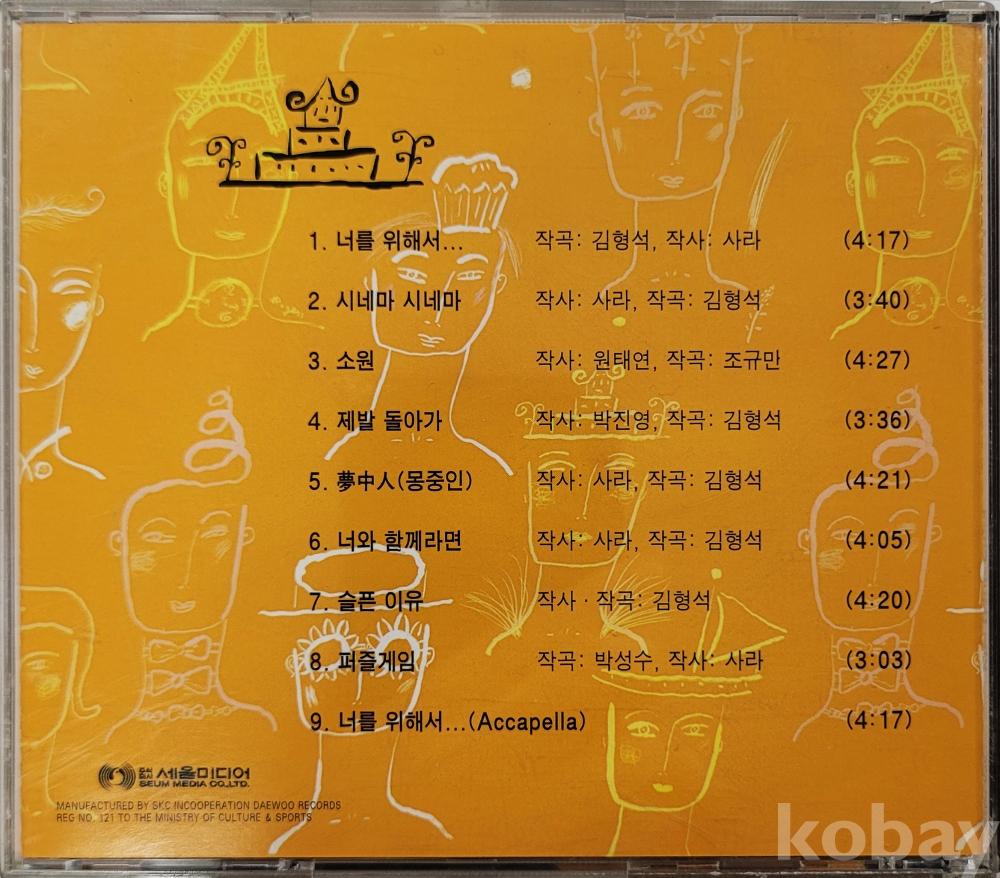 1. 너를 위해서... 작곡: 김형석, 작사: 사라 (4:17)
2. 시네마 시네마 작사: 사라, 작곡: 김형석 (3:40)
3. 소원 작사: 원태연, 작곡: 조규만 (4:27)
4. 제발 돌아가 작사: 박진영, 작곡: 김형석 (3:36)
5. 夢中人(몽중인) 작사: 사라, 작곡: 김형석 (4:21)
6. 너와 함께라면 작사: 사라, 작곡: 김형석 (4:05)
7. 슬픈 이유 작사 · 작곡: 김형석 (4:20)
8. 퍼즐게임 작곡: 박성수, 작사: 사라 (3:03)
9. 너를 위해서...(Accapella) (4:17)
세움미디어
SEUM MEDIA CO.,LTD.
MANUFACTURED BY SKC INCOOPERATION DAEWOO RECORDS
REG NO. 121 TO THE MINISTRY OF CULTURE & SPORTS
kobay